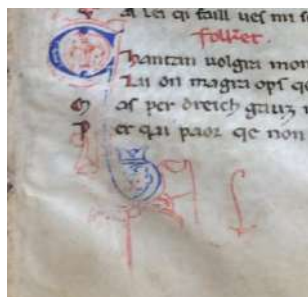 A lei qi faill ues mi s
follzet.
Chantan uolgra mon
Lai on magra ops qe
M as per dreich gauz n
P er qai paor qe non